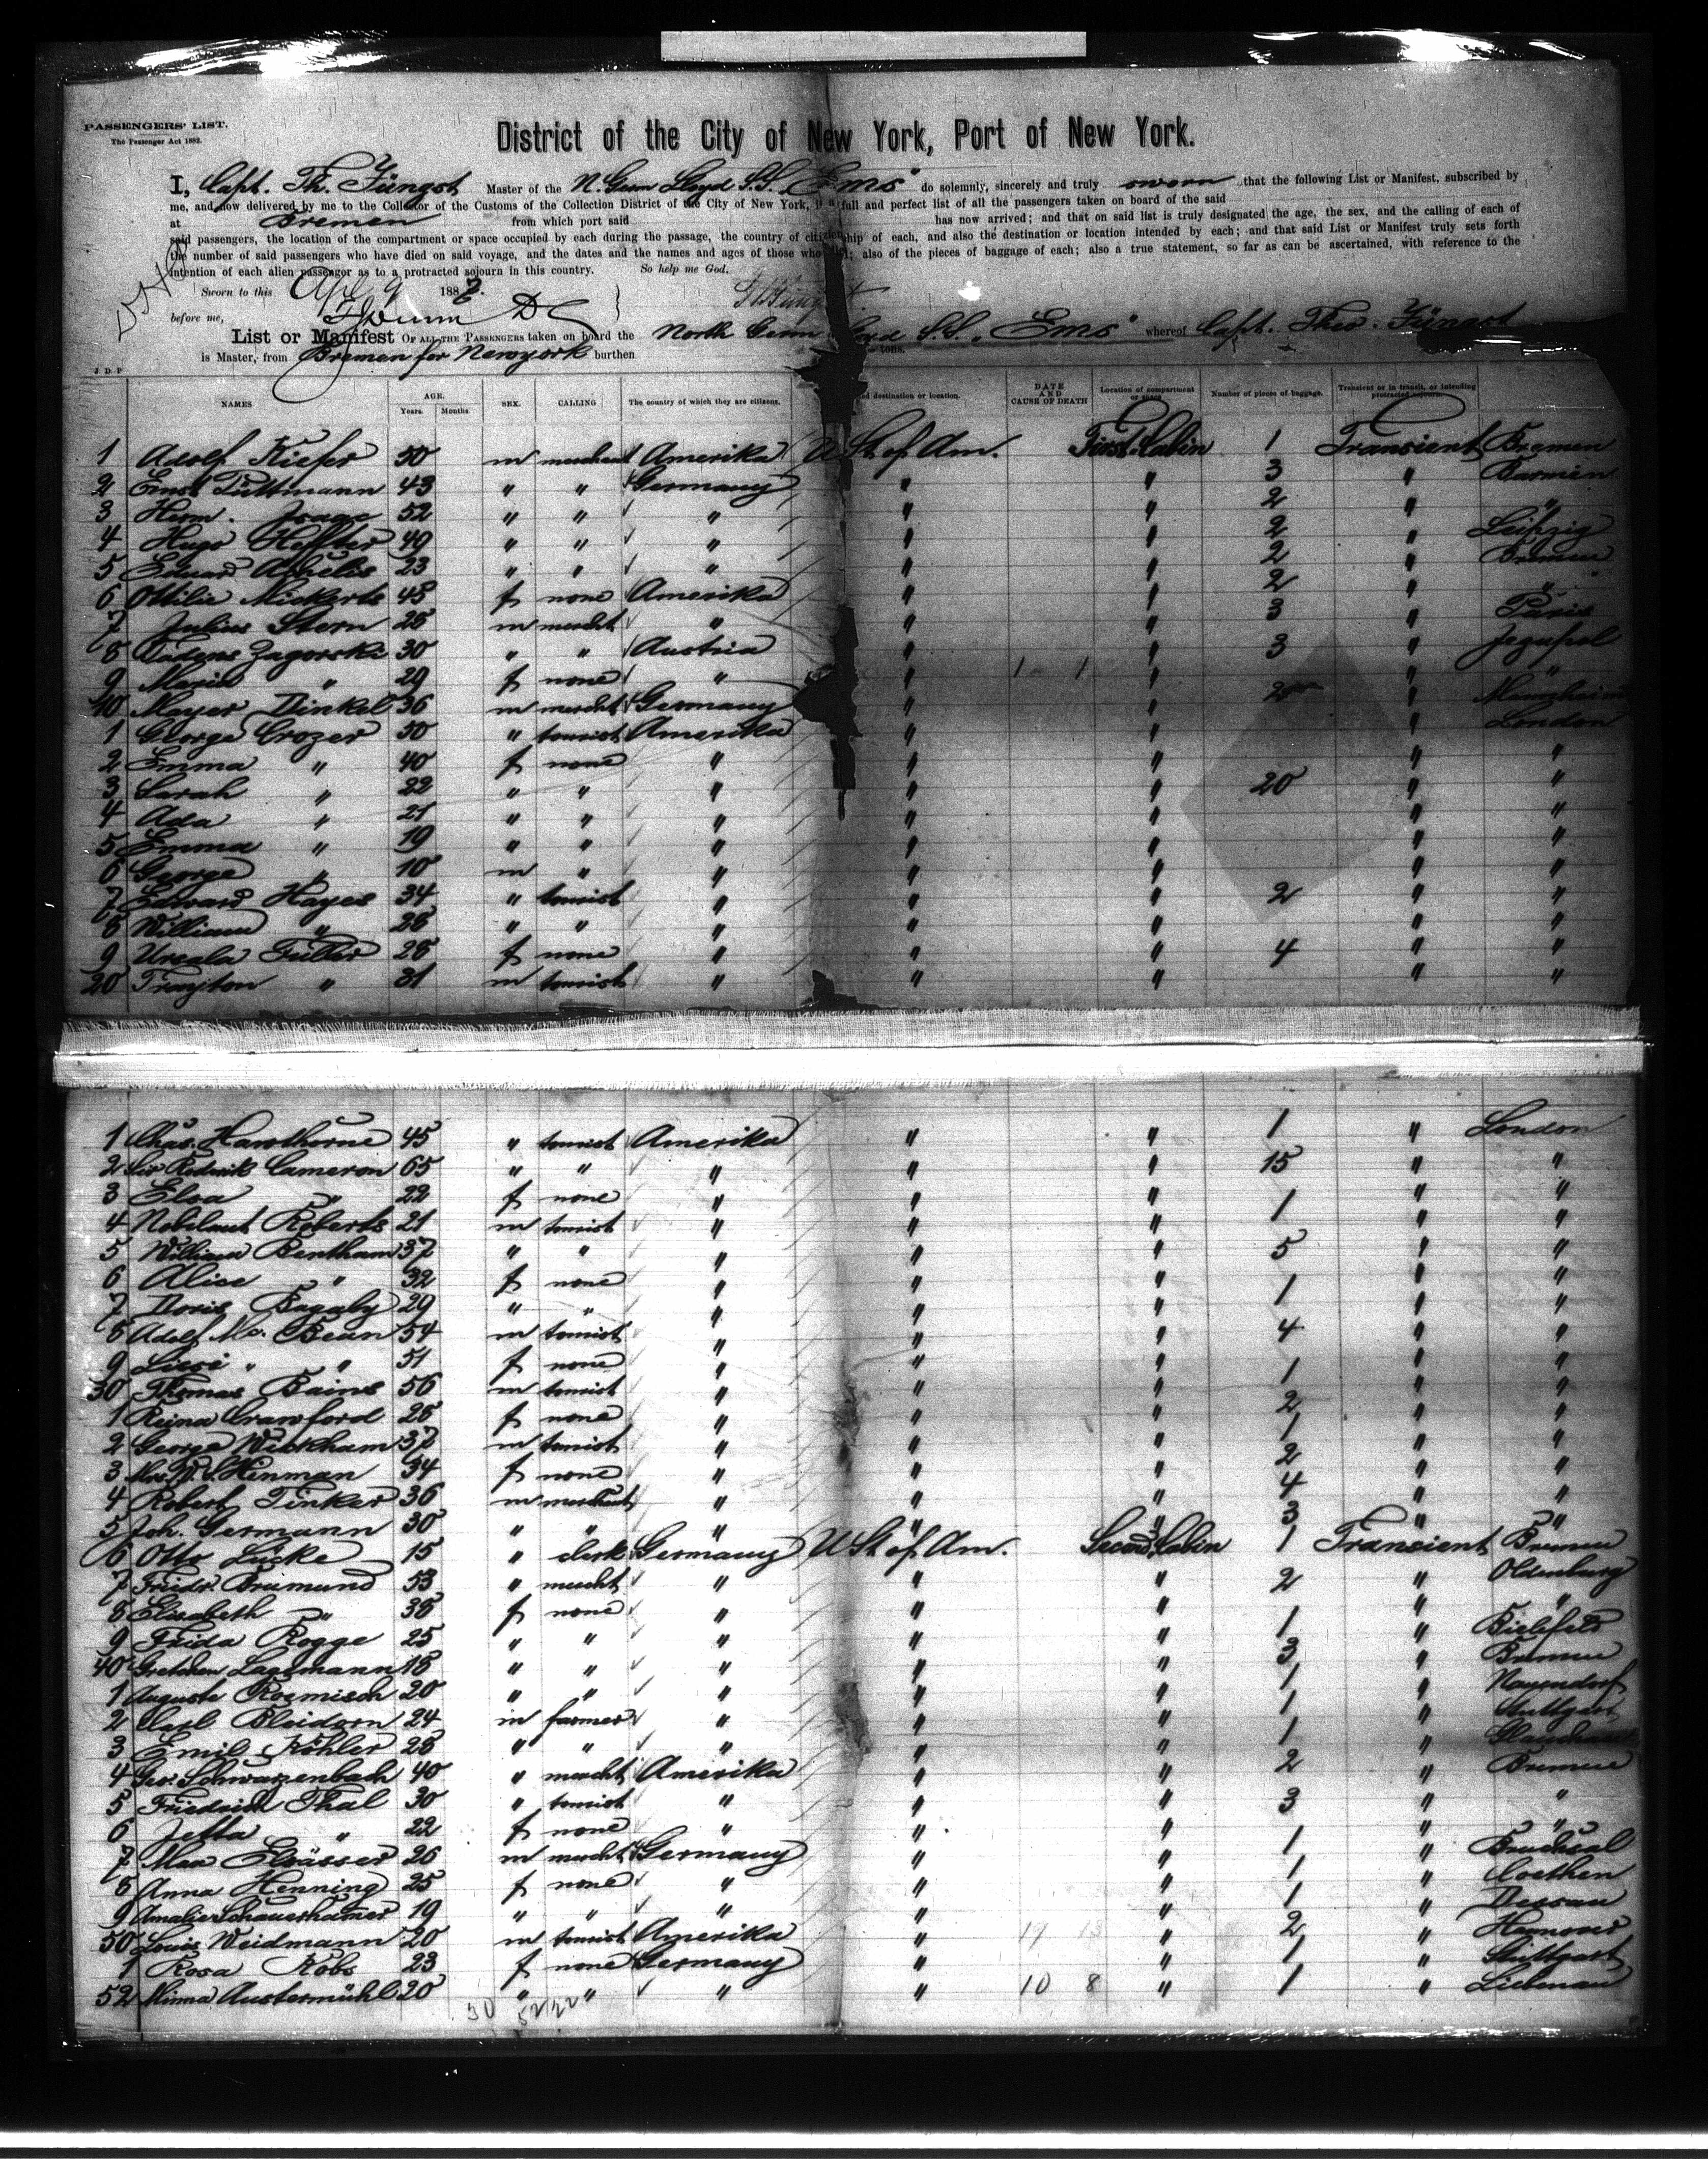 PASSENGERS' LIST.
The Passenger Act 1882.
District of the City of New York, Port of New York.
I, Capt. Th. Jüngst Master of the N. Germ Lloyd S.S. "Ems" do solemnly, sincerely and truly sworn that the following List or Manifest, subscribed by
me, and now delivered by me to the Collector of the Customs of the Collection District of the City of New York, is a full and perfect list of all the passengers taken on board of the said
at Bremen from which port said has now arrived; and that on said list is truly designated the age, the sex, and the calling of each of
said passengers, the location of the compartment or space occupied by each during the passage, the country of citizenship of each, and also the destination or location intended by each; and that said List or Manifest truly sets forth
the number of said passengers who have died on said voyage, and the dates and the names and ages of those who died; also of the pieces of baggage of each; also a true statement, so far as can be ascertained, with reference to the
intention of each alien passenger as to a protracted sojourn in this country. So help me God.
Sworn to this April 9 1887.
before me,
List or Manifest OF ALL THE PASSENGERS taken on board the North Germ Lloyd S.S. "Ems" whereof Capt. Theo. Jüngst
is Master, from Bremen for Newyork burthen tons.
J D P
NAMES AGE. Years. Months. SEX. CALLING The country of which they are citizens. destination or location. DATE AND CAUSE OF DEATH Location of compartment or space Number of pieces of baggage. Transient or in transit, or intending protracted sojourn.
1 Adolf Kiefer 50 m merchant Amerika U St. of Am. First Cabin 1 Transient Bremen
2 Ernst Püttmann 43 " " Germany " " 3 " Barmen
3 Herm. 52 " " " " " 2 " "
4 Hugo Heffter 49 " " " " " 2 " Leipzig
5 Eduard Achelis 23 " " " " " 2 " Bremen
6 Ottilie 45 f none Amerika " " 2 " "
7 Julius Stern 25 m mercht " " " 3 " Paris
8 Zagorski 30 " " Austria " " 3 " Jezupol
9 Maria " 29 f none " " " " "
10 Meyer Dinkel 36 m mercht Germany " " 2 " Mannheim
1 George Crozer 50 " tourist Amerika " " " London
2 Emma " 40 f none " " " " "
3 Sarah " 22 " " " " " 20 " "
4 Ada " 21 " " " " " " "
5 Emma " 19 " " " " " " "
6 George " 10 m " " " " " "
7 Edward Hayes 34 " tourist " " " 2 " "
8 William " 28 " " " " " " "
9 Ursala Fuller 28 f none " " " 4 " "
20 Frayton " 31 m tourist " " " " "
1 Chas. Hawthorne 45 " tourist Amerika " " 1 " London
2 Sir Roderick Cameron 65 " " " " " 15 " "
3 Elva " 22 f none " " " " "
4 Roberts 21 m tourist " " " 1 " "
5 William Bentham 37 " " " " " 5 " "
6 Alice " 32 f none " " " " "
7 Doris Bagaby 29 " " " " " 1 " "
8 Adolf Mc. Bean 54 m tourist " " " 4 " "
9 " " 51 f none " " " " "
30 Thomas Bains 56 m tourist " " " 1 " "
1 Reina Crawford 28 f none " " " 2 " "
2 George Wickham 37 m tourist " " " 1 " "
3 Mrs. W. S. Hinman 34 f none " " " 2 " "
4 Robert Tinker 36 m merchant " " " 4 " "
5 Joh. Germann 30 " " " " " 3 " "
6 Otto Lücke 15 " clerk Germany U St. of Am. Second Cabin 1 Transient Bremen
7 Friedr. Brumund 53 " mercht " " " 2 " Oldenburg
8 Elisabeth " 38 f none " " " " "
9 Frida Rogge 25 " " " " " 1 " Bielefeld
40 Gretchen Lagemann 18 " " " " " 3 " Bremen
1 Auguste Roemisch 20 " " " " " 1 " Nauendorf
2 Carl Bleidorn 24 m farmer " " " 1 " Stuttgart
3 Emil Köhler 28 " " " " " 1 " Glauchau
4 Geo. Schwarzenbach 40 " mercht Amerika " " 2 " Bremen
5 Friedrich Thal 30 " tourist " " " 3 " "
6 Jetta " 22 f none " " " " "
7 Max Elsässer 26 m mercht Germany " " 1 " Bruchsal
8 Anna Henning 25 f none " " " 1 " Coethen
9 Amalie Schauerhamer 19 " " " " " 1 " Dessau
50 Louis Weidmann 20 m tourist Amerika " 19 13 " 2 " Hanover
1 Rosa Robs 23 f none Germany " " 1 " Stuttgart
52 Minna Austermühl 20 " " " " 10 8 " 1 " Liebenau
30 52/22